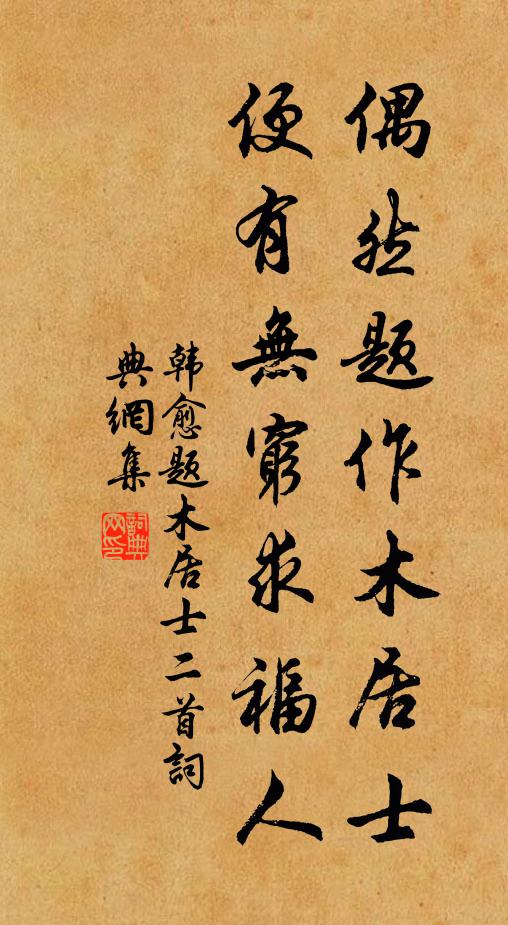 偶然题作木居士
便有無窮求福人
韩愈题木居士二首詞
典網集
詞典网印